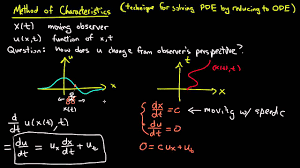 Method of Characteristics (technique for solving PDE by reducing to ODE)
x(t) moving observer
u(x,t) function of x,t
Question: How does u change from observer's perspective?
u
x
t
(x(t), t)
x
d/dt u(x(t), t)
= du/dt = u_x dx/dt + u_t
{ dx/dt = c ← moving w/ speed c
du/dt = 0
0 = c u_x + u_t